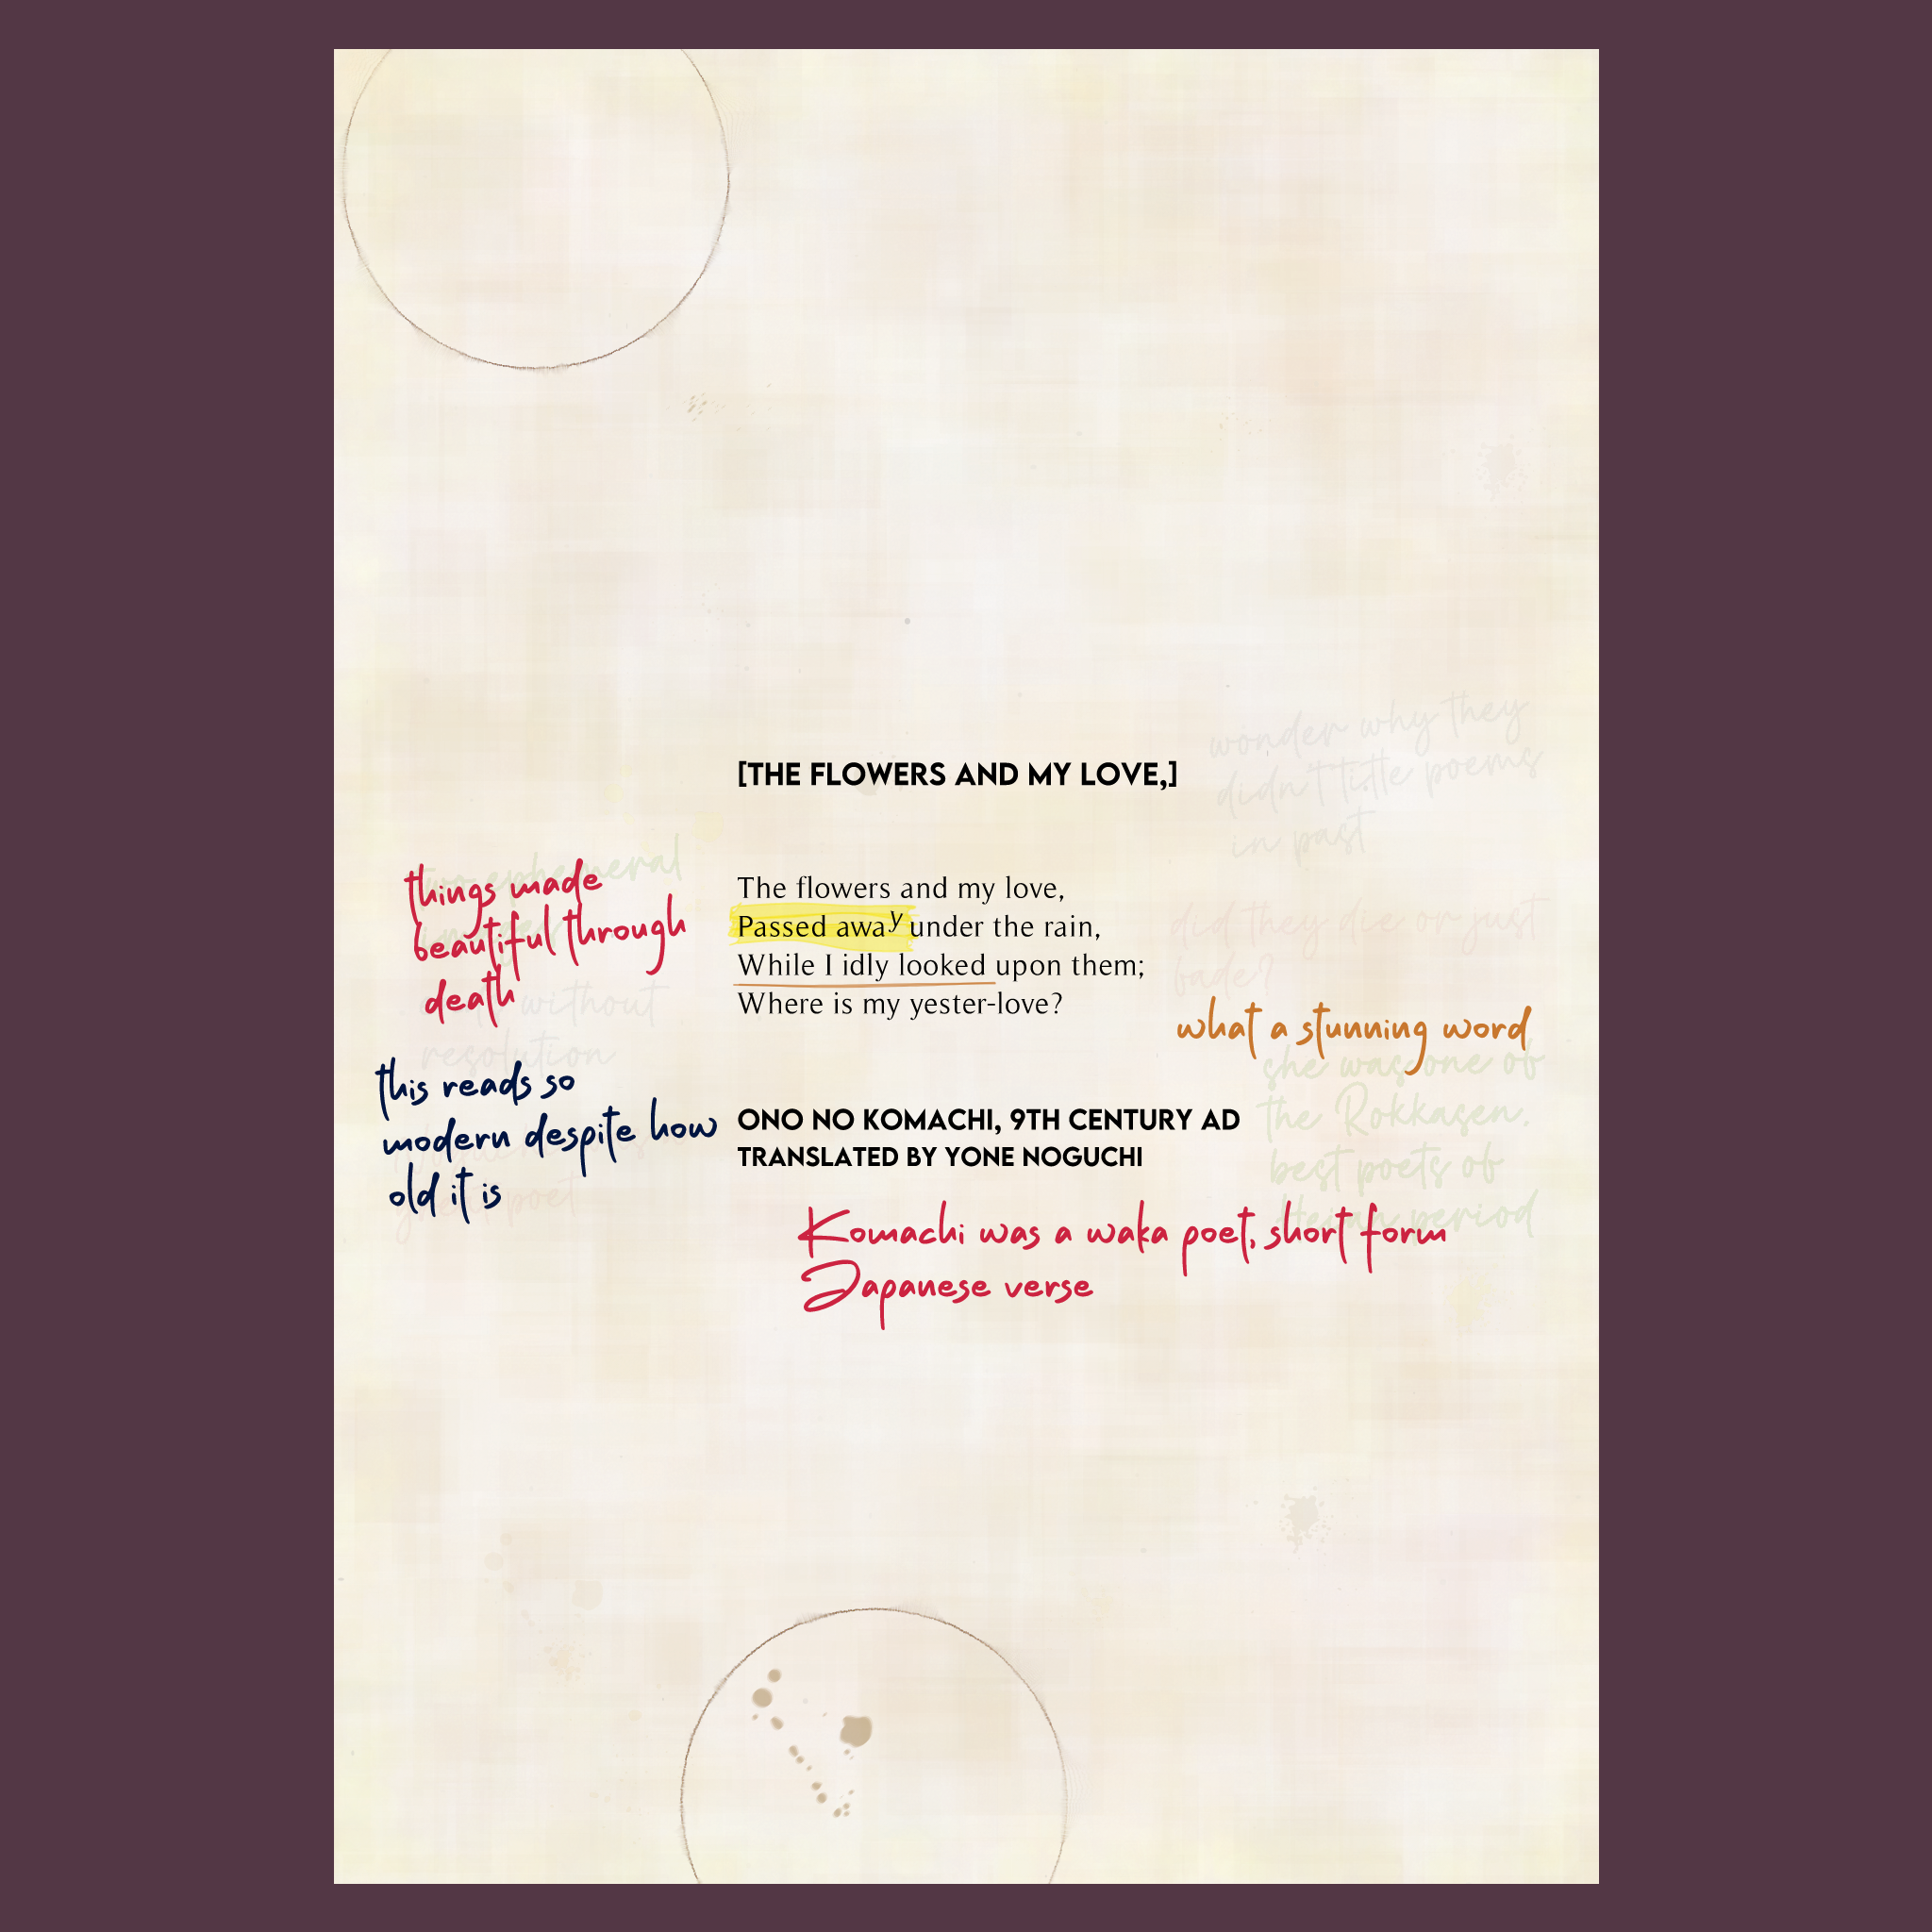 wonder why they
didn't title poems
in past
[THE FLOWERS AND MY LOVE,]
The flowers and my love,
Passed away under the rain,
While I idly looked upon them;
Where is my yester-love?
two ephemeral
things made
beautiful through
death
without
resolution
this reads so
modern despite how
old it is
poet
did they die or just
fade?
what a stunning word
she was one of
the Rokkasen.
best poets of
Heian period
ONO NO KOMACHI, 9TH CENTURY AD
TRANSLATED BY YONE NOGUCHI
Komachi was a waka poet, short form
Japanese verse